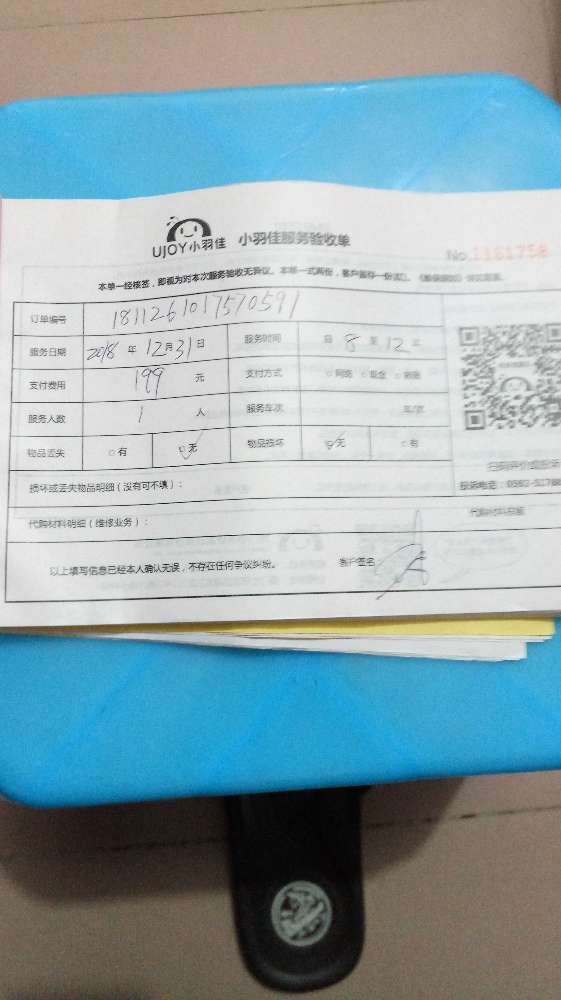 UJOY小羽佳 小羽佳服务验收单
No.1161758
本单一经核签，即视为对本次服务验收无异议。本单一式两份，客户留存一份
订单编号 1811261017570591
服务日期 2018 年 12 月 31 日 服务时间 自 8 至 12
支付费用 199 元 支付方式 □网络 □现金
服务人数 1 人 服务车次 车/次
物品丢失 □有 ☑无 物品损坏 ☑无 □有
扫码评价或投诉
损坏或丢失物品明细（没有可不填）：
投诉电话：
代购材料明细（维修业务）：
代购材料总额
以上填写信息已经本人确认无误，不存在任何争议纠纷。 客户签名